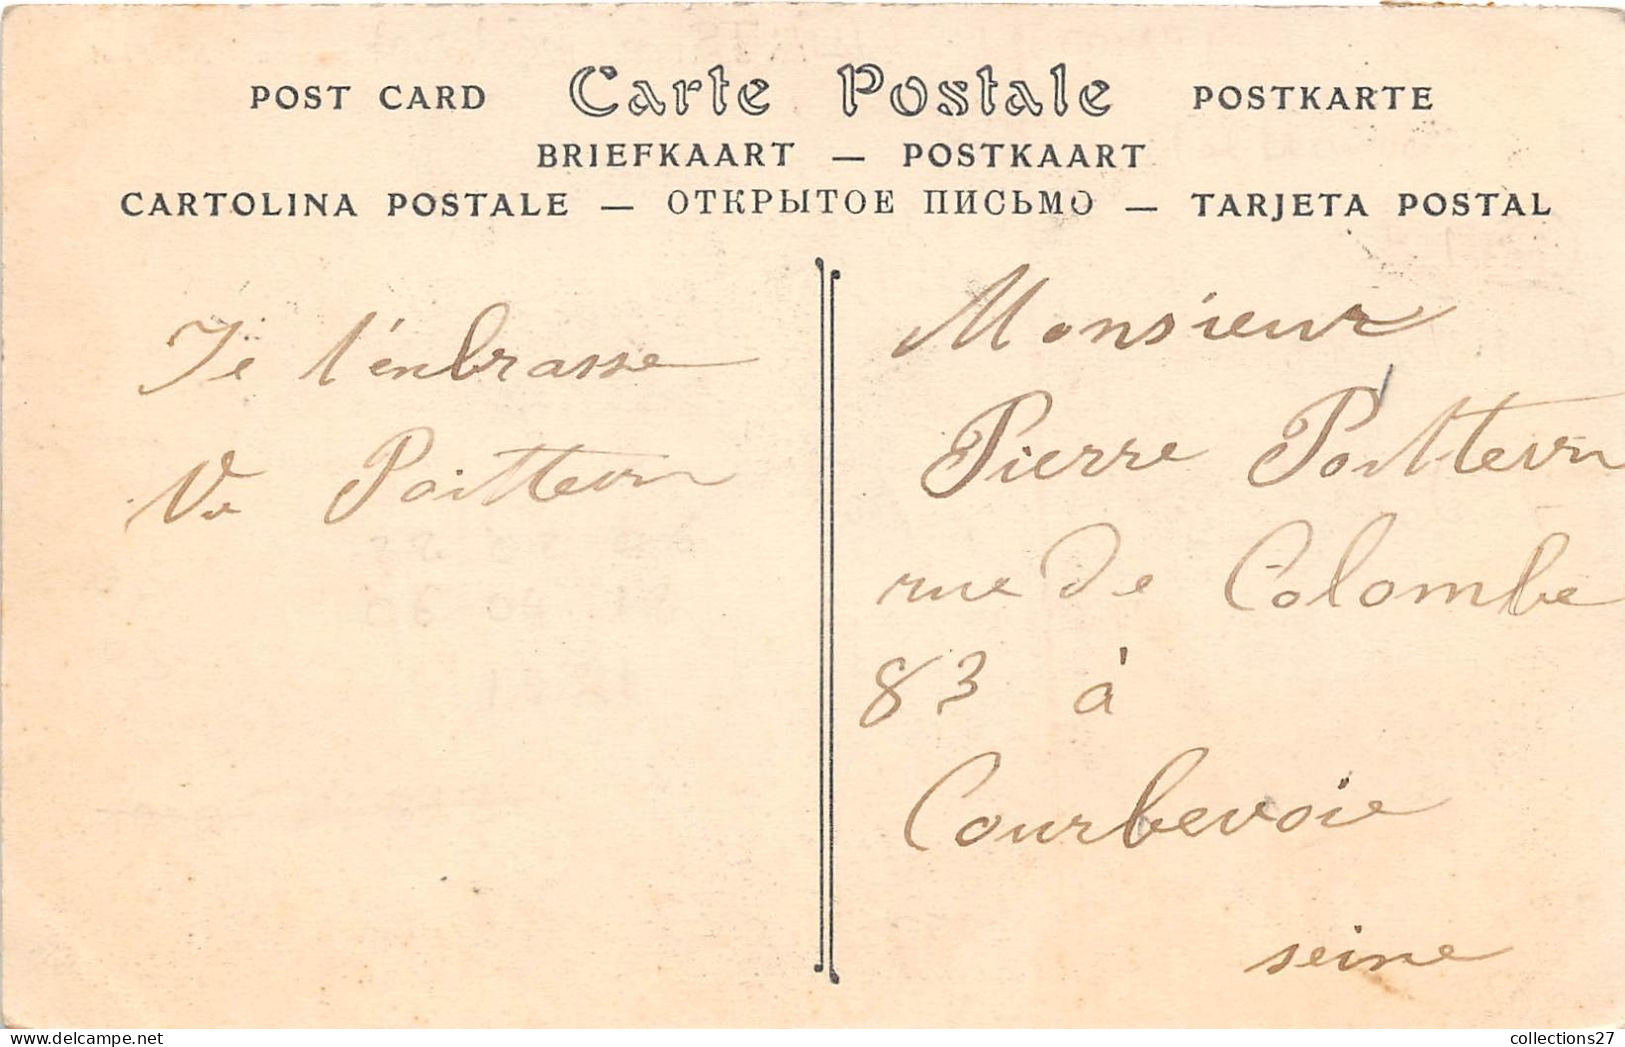 POST CARD Carte Postale POSTKARTE
BRIEFKAART — POSTKAART
CARTOLINA POSTALE — ОТКРЫТОЕ ПИСЬМО — TARJETA POSTAL
Je t'enbrasse
Ve Poittevin
Monsieur
Pierre Poittevin
rue de Colombe
83 à
Courbevoie
seine
collections27